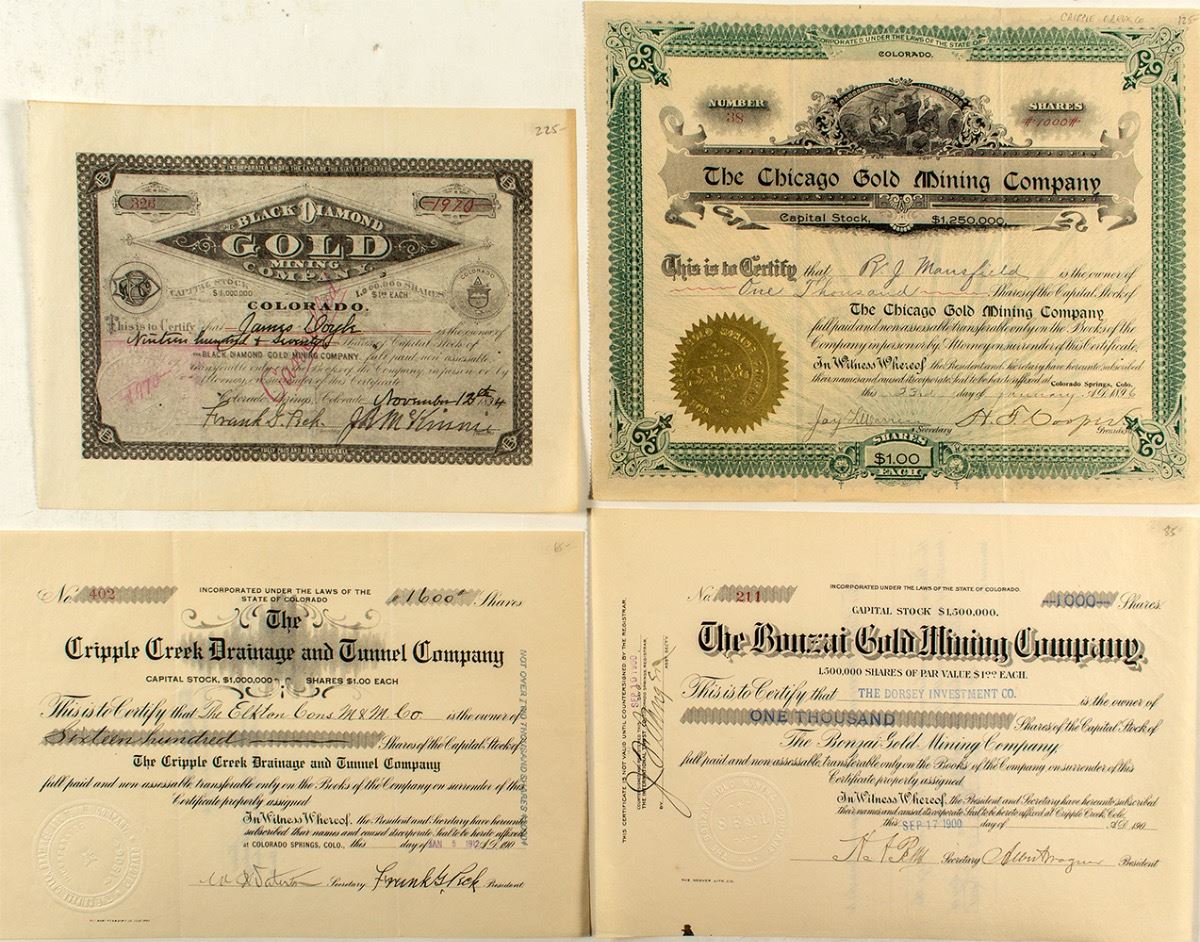 225-
INCORPORATED UNDER THE LAWS OF THE STATE OF COLORADO
326
1970
THE BLACK DIAMOND
GOLD
MINING
COMPANY.
CAPITAL STOCK
$1,000,000
1,000,000 SHARES
$1.00 EACH
COLORADO
COLORADO.
This is to Certify that James Doyle is the owner of
Nineteen hundred & seventy Shares of Capital Stock of
THE BLACK DIAMOND GOLD MINING COMPANY. full paid, non assessable
transferable only on the books of the Company, in person or by
Attorney, on surrender of this Certificate.
Colorado Springs, Colorado, November 12th 1894
Cancelled
1970
Frank G. Peck. J A McKinnie
FULLY PAID AND NON ASSESSABLE
CRIPPLE CREEK CO
125-
INCORPORATED UNDER THE LAWS OF THE STATE OF
COLORADO.
NUMBER
38
SHARES
#1000#
The Chicago Gold Mining Company
Capital Stock, $1,250,000.
This is to Certify that R. J. Mansfield is the owner of
One Thousand Shares of the Capital Stock of
The Chicago Gold Mining Company
full paid and non assessable transferable only on the Books of the
Company in person or by Attorney on surrender of this Certificate.
In Witness Whereof, the President and Secretary have hereunto subscribed
their names and caused its corporate Seal to be hereto affixed at Colorado Springs, Colo.
this 23rd day of January A.D. 1896
Secretary
President
SEAL
SHARES
$1.00
EACH
65-
No. 402
INCORPORATED UNDER THE LAWS OF THE
STATE OF COLORADO
#1600# Shares
The
Cripple Creek Drainage and Tunnel Company
CAPITAL STOCK, $1,000,000 SHARES $1.00 EACH
This is to Certify that The Elkton Cons M & M Co is the owner of
Sixteen hundred Shares of the Capital Stock of
The Cripple Creek Drainage and Tunnel Company
full paid and non assessable transferable only on the Books of the Company on surrender of this
Certificate properly assigned
In Witness Whereof, the President and Secretary have hereunto
subscribed their names and caused its corporate Seal to be hereto affixed
at COLORADO SPRINGS, COLO., this day of JAN 5 1912 A.D. 190
Secretary Frank G Peck President
NOT OVER TWO THOUSAND SHARES
85-
No. 211
INCORPORATED UNDER THE LAWS OF THE STATE OF COLORADO.
1000 Shares.
CAPITAL STOCK $1,500,000.
The Bonzai Gold Mining Company.
1,500,000 SHARES OF PAR VALUE $1.00 EACH.
This is to Certify that THE DORSEY INVESTMENT CO. is the owner of
ONE THOUSAND Shares of the Capital Stock of
The Bonzai Gold Mining Company,
full paid and non assessable, transferable only on the Books of the Company on surrender of this
Certificate properly assigned
In Witness Whereof, the President and Secretary have hereunto subscribed
their names and caused its corporate Seal to be hereto affixed at Cripple Creek, Colo.
this SEP 17 1900 day of A.D. 190
Secretary President
THIS CERTIFICATE IS NOT VALID UNTIL COUNTERSIGNED BY THE REGISTRAR.
SEP 19 1900
THE INTERNATIONAL TRUST CO.
BY
ASST. SECTY.
THE DENVER LITH. CO.